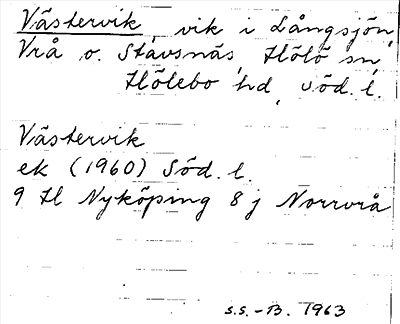 Västervik, vik i Långsjön,
Vrå o. Stavsnäs, Hölö sn,
Hölebo hd, Söd. l.
Västervik
ek (1960) Söd. l.
9 H Nyköping 8 j Norrvrå
S.S.-B. 1963